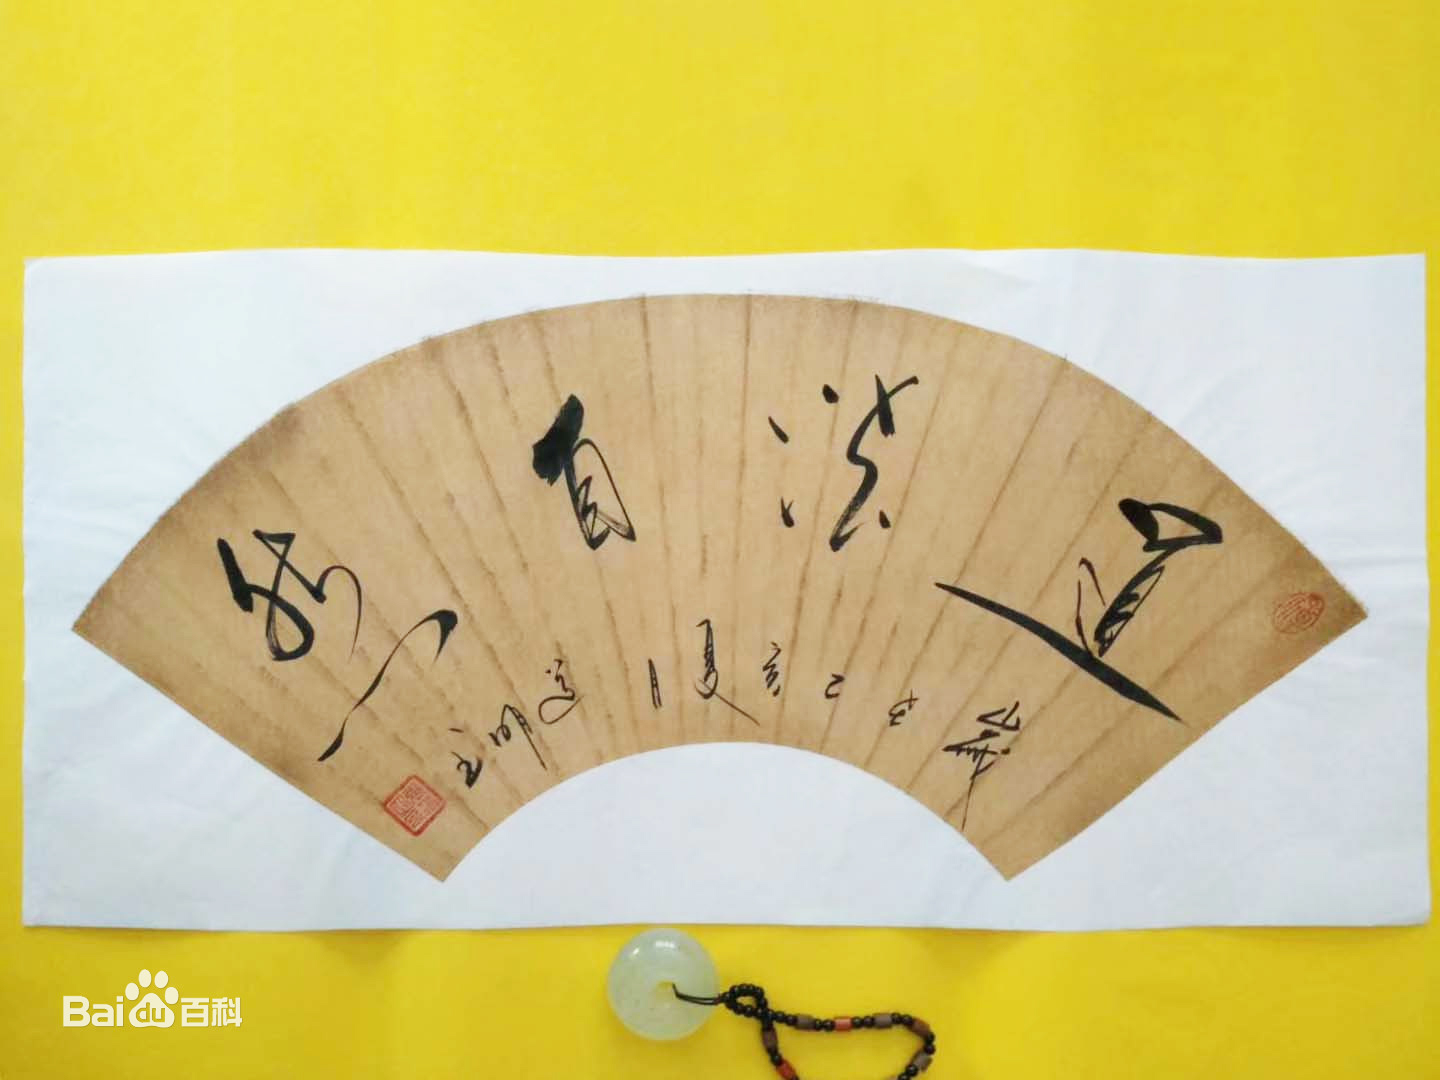 道法自然
歲在己亥夏月道明
Bai du 百科